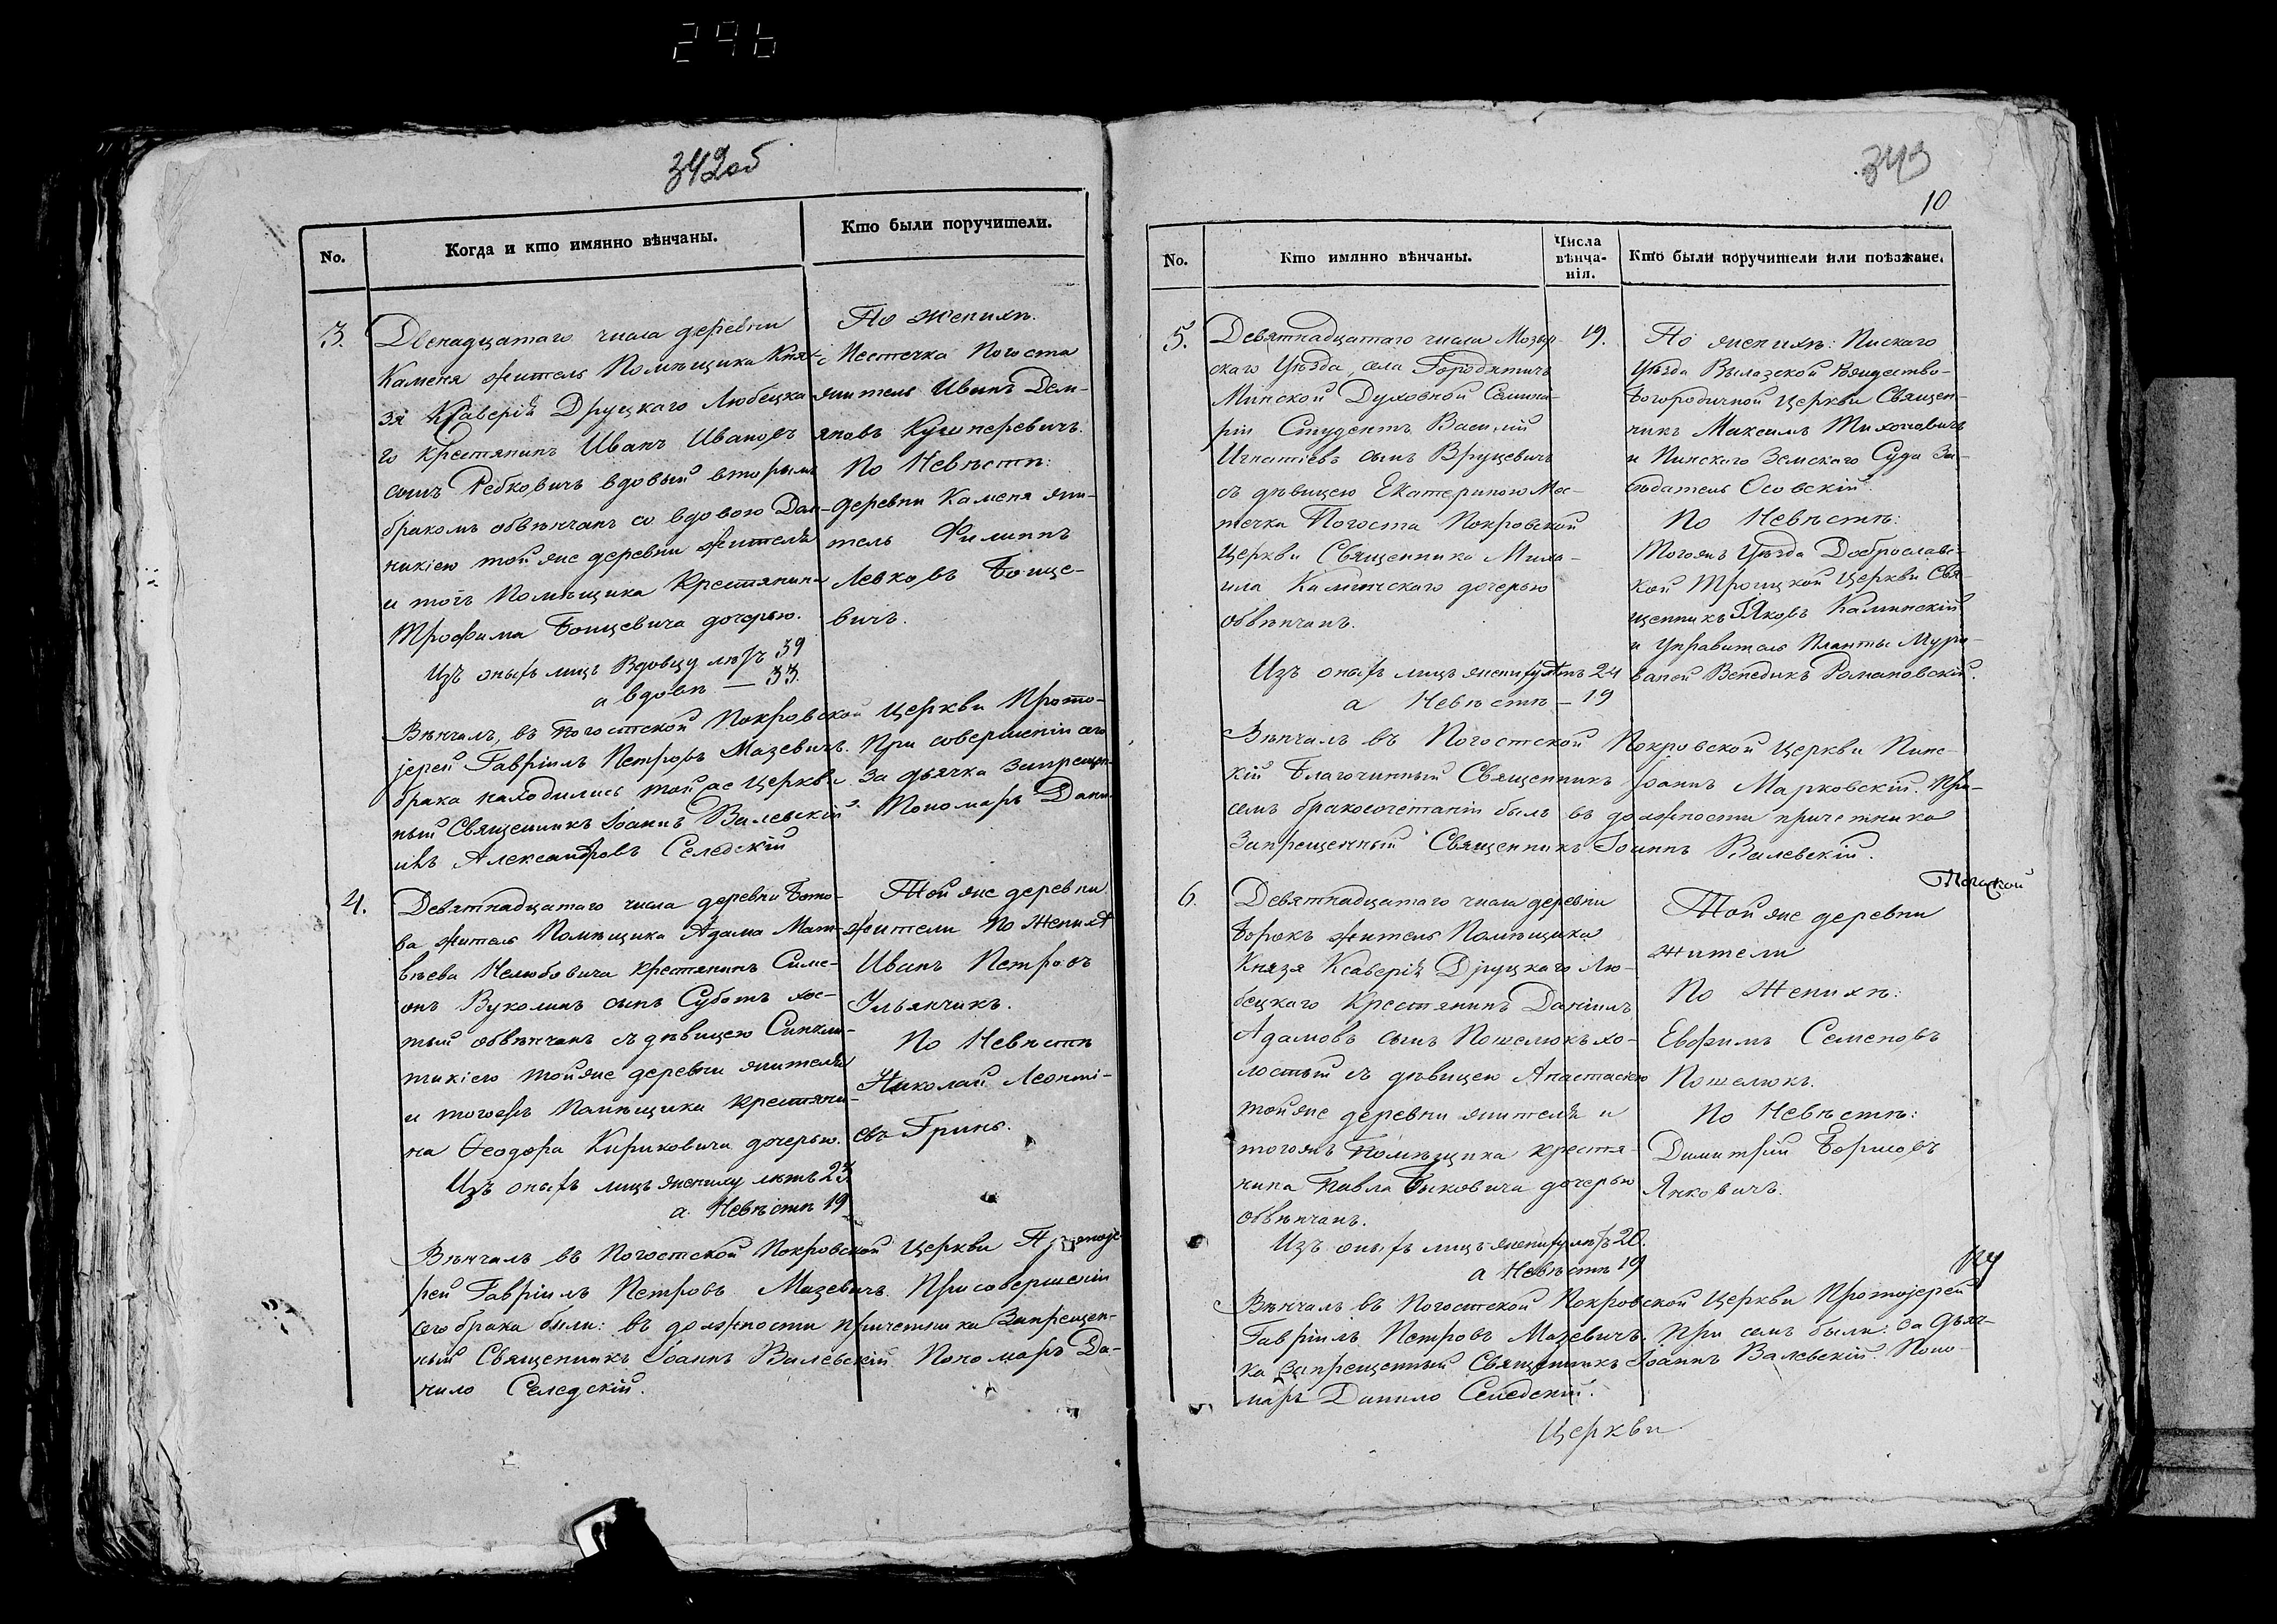 296
342об
No.
Когда и кто имянно вѣнчаны.
Кто были поручители.
3.
Двенадцатаго числа деревни
Каменя житель Помѣщика Кня-
зя Ксаверія Друцкаго Любецка
го Крестянинъ Иванъ Ивановъ
сынъ Ребковичъ вдовый вторымъ
бракомъ обвѣнчанъ со вдовою
никіею той же деревни жителя
и тогъ Помѣщика Крестянина
Трофима Боищевича дочерью.
Изъ оныхъ лицъ Вдовцу лѣтъ 39
а вдовѣ — 33.
По женихѣ.
Местечка Погоста
житель Иванъ Дем-
яновъ Кушнеревичъ.
По Невѣстѣ:
деревни Каменя жи-
тель Филиппъ
Левковъ Боище-
вичъ.
Вѣнчалъ, въ Погостской Покровской Церкви Прото-
іерей Гавріилъ Петровъ Мазевичъ. При совершеніи сего
брака находились той же Церкви За дьячка Запрещен-
ный Священникъ Іоаннъ Валевскій Пономарь Дани-
илъ Александровъ Селедскій
4.
Девятнадцатаго числа деревни
ва житель Помѣщика Адама Мат-
вѣева Нелюбовича крестянинъ Симе-
онъ Вуколинъ сынъ Суботъ хос-
тый обвѣнчанъ съ дѣвицею Синкли-
тикіею тойже деревни жителя
и тогожъ Помѣщика крестяни-
на Ѳеодора Кириковича дочерью.
Изъ оныхъ лицъ жениху лѣтъ 23
а Невѣстѣ 19
Той же деревни
жители По Женихѣ
Иванъ Петровъ
Ульянчикъ.
По Невѣстѣ
Николай Леонті-
евъ Гринь.
Вѣнчалъ въ Погостской Покровской Церкви Протоіе-
рей Гавріилъ Петровъ Мазевичъ. При совершеніи
сего брака были: въ должности причетника Запрещен-
ный Священникъ Іоаннъ Валевскій Пономарь Да-
нило Селедскій.
343
10
No.
Кто имянно вѣнчаны.
Числа вѣнча-нія.
Кто были поручители или поѣзжане.
5.
Девятнадцатаго числа Мозыр-
скаго Уѣзда, села Городятичъ
Минской Духовной Семина-
ріи Студентъ Василій
Игнатіевъ сынъ Вруцевичъ
съ дѣвицею Екатериною Мес-
течка Погоста Покровской
Церкви Священника Миха-
ила Каминскаго дочерью
обвѣнчанъ.
Изъ оныхъ лицъ жениху лѣтъ 24
а Невѣстѣ — 19
19.
По женихѣ: Пинскаго
Уѣзда Вылазской Рождество-
Богородичной Церкви Священ-
никъ Максимъ Тихоновичъ
и Пинскаго Земскаго Суда За-
сѣдатель Осовскій.
По Невѣстѣ:
Тогожъ Уѣзда Доброславс-
кой Троицкой Церкви Свя-
щенникъ Яковъ Каминскій
и Управитель Планты Муро-
ваней Венедикъ Романовскій.
Вѣнчалъ въ Погостской Покровской Церкви Пинс-
кій Благочинный Священникъ Іоаннъ Марковскій. При
семъ бракосочетаніи былъ въ должности причетника
Запрещенный Священникъ Іоаннъ Валевскій.
6.
Девятнадцатаго числа деревни
Борокъ житель Помѣщика
Князя Ксаверія Друцкаго Лю-
бецкаго Крестянинъ Даніилъ
Адамовъ сынъ Пошелюкъ хо-
лостый съ дѣвицею Анастасіею
тойже деревни жителя и
тогожъ Помѣщика крестя-
нина Павла Быковича дочерью
обвѣнчанъ.
Изъ оныхъ лицъ жениху лѣтъ 20.
а Невѣстѣ 19
Той же деревни
жители
По Женихѣ:
Евфимъ Семеновъ
Пошелюкъ.
По Невѣстѣ:
Димитрій Борисовъ
Янковичъ.
Вѣнчалъ въ Погостской Покровской Церкви Протоіерей
Гавріилъ Петровъ Мазевичъ. При семъ были: за дьяч-
ка Запрещенный Священникъ Іоаннъ Валевскій. Поно-
марь Данило Селедскій.
Церкви